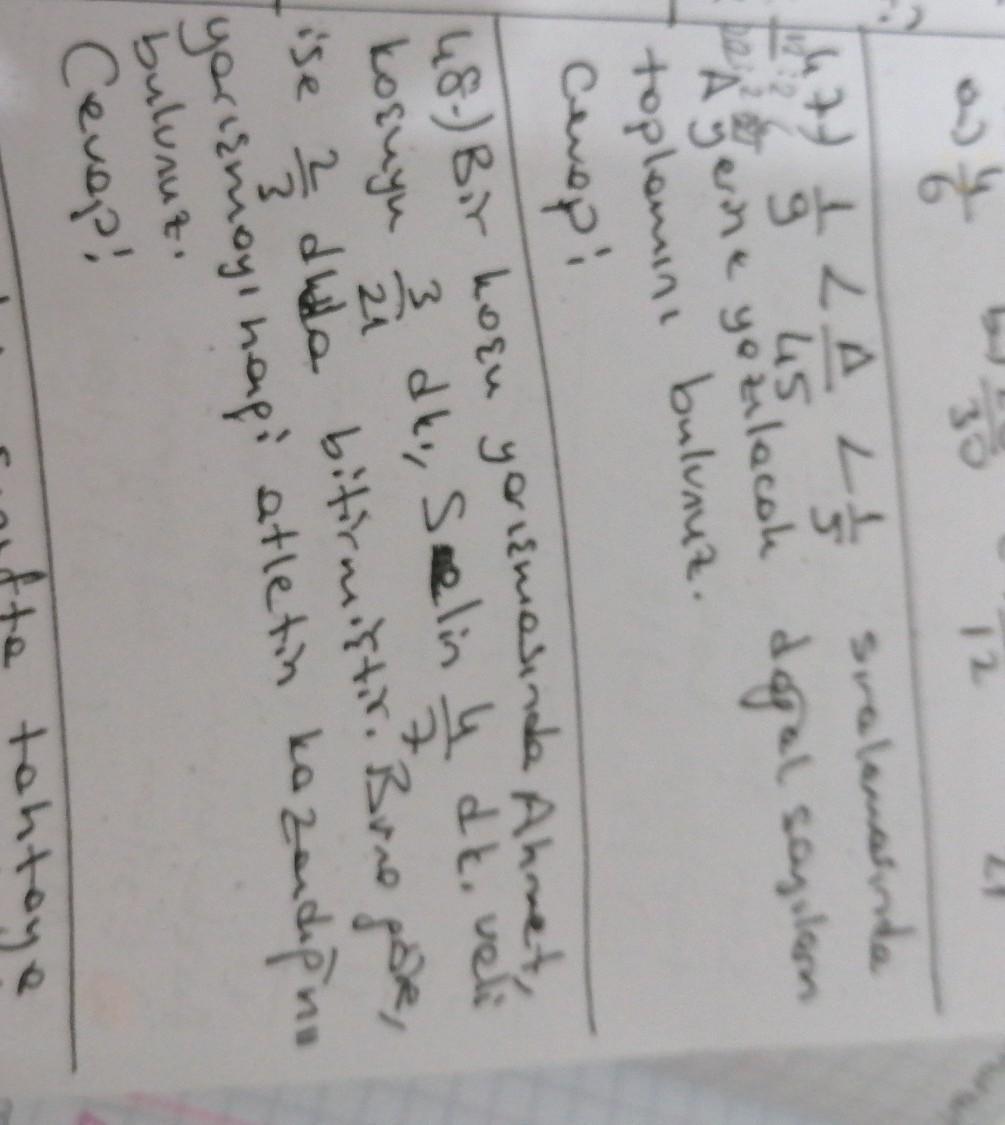 a) 4/6 30 12 21
47) 1/9 < A/45 < 1/5 sıralamasında
A yerine yazılacak doğal sayıların
toplamını bulunuz.
Cevap:
48-) Bir koşu yarışmasında Ahmet,
koşuyu 3/21 dk, Selin 4/7 dk. veli
ise 2/3 dkda bitirmiştir. Buna göre,
yarışmayı hangi atletin kazandığını
bulunuz.
Cevap:
sınıfta tahtaya